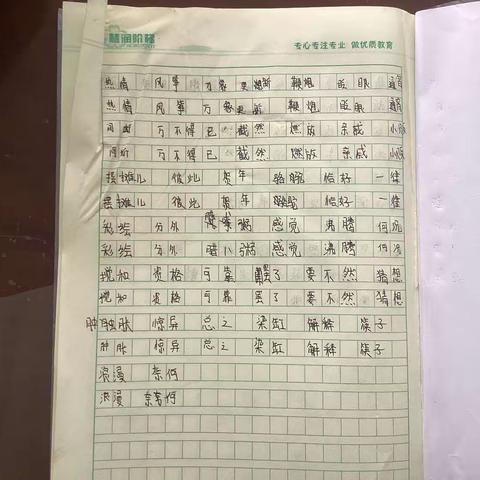 慧润阶梯
专心专注专业 做优质教育
热情 风筝 万象更新 鞭炮 眨眼 通宵
热情 风筝 万象更新 鞭炮 眨眼 通宵
间断 万不得已 截然 燃放 亲戚 小贩
间断 万不得已 截然 燃放 亲戚 小贩
摆摊儿 彼此 贺年 骆驼 恰好 一律
摆摊儿 彼此 贺年 骆驼 恰好 一律
彩绘 分外 粥 感觉 沸腾 何况
彩绘 分外 腊八粥 感觉 沸腾 何况
搅和 资格 可靠 罢了 要不然 猜想
搅和 资格 可靠 罢了 要不然 猜想
肿胀 惊异 总之 染缸 解释 筷子
肿胀 惊异 总之 染缸 解释 筷子
浪漫 奈何
浪漫 奈何